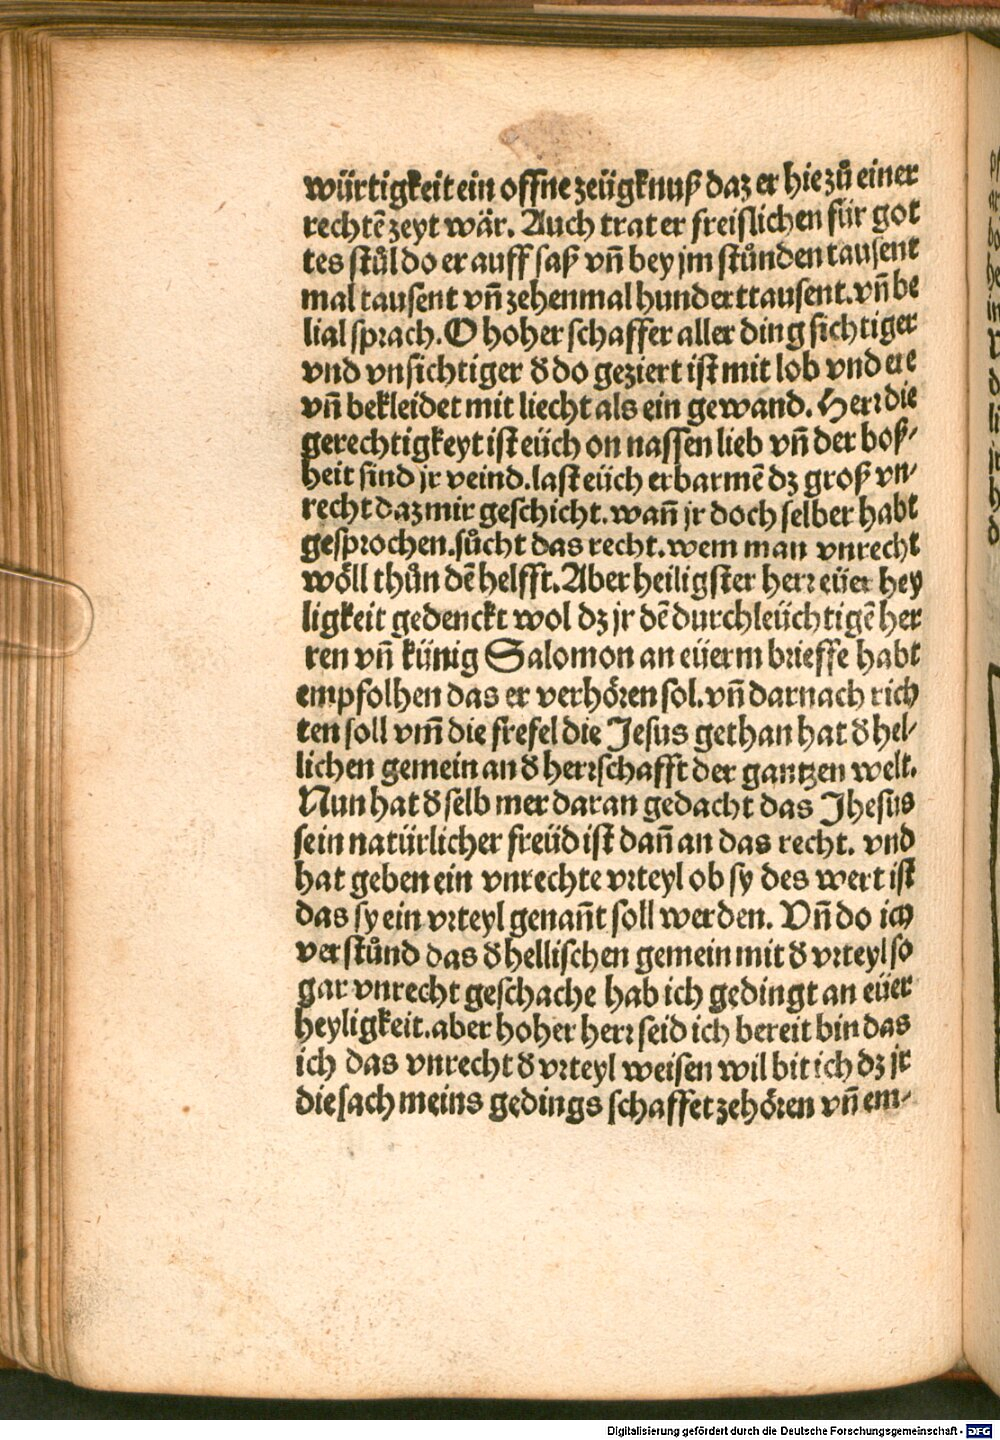 würtigkeit ein offne zeügknuß daz er hie zů einer
rechtē zeyt wär. Auch trat er freislichen für got
tes stůl do er auff saß vñ bey jm stůnden tausent
mal tausent vñ zehenmal hunderttausent. vñ be
lial sprach. O hoher schaffer aller ding sichtiger
vnd vnsichtiger đ do geziert ist mit lob vnd ere
vñ bekleidet mit liecht als ein gewand. Herr die
gerechtigkeyt ist eüch on nassen lieb vñ der boß⸗
heit sind jr veind. last eüch erbarmē dz groß vn⸗
recht daz mir geschicht. wañ jr doch selber habt
gesprochen. sůcht das recht. wem man vnrecht
wöll thůn dē helfft. Aber heiligster herr eüer hey
ligkeit gedenckt wol dz jr dē durchleüchtigē her
ren vñ künig Salomon an eüerm brieffe habt
empfolhen das er verhören sol. vñ darnach rich
ten soll vm̄ die frefel die Jesus gethan hat đ hel⸗
lichen gemein an đ herrschafft der gantzen welt.
Nun hat đ selb mer daran gedacht das Jhesus
sein natürlicher freüd ist dañ an das recht. vnd
hat geben ein vnrechte vrteyl ob sy des wert ist
das sy ein vrteyl genañt soll werden. Vñ do ich
verstůnd das đ hellischen gemein mit đ vrteyl so
gar vnrecht geschache hab ich gedingt an eüer
heyligkeit. aber hoher herr seid ich bereit bin das
ich das vnrecht đ vrteyl weisen wil bit ich dz jr
die sach meins gedings schaffet zehören vñ em⸗
Digitalisierung gefördert durch die Deutsche Forschungsgemeinschaft - DFG